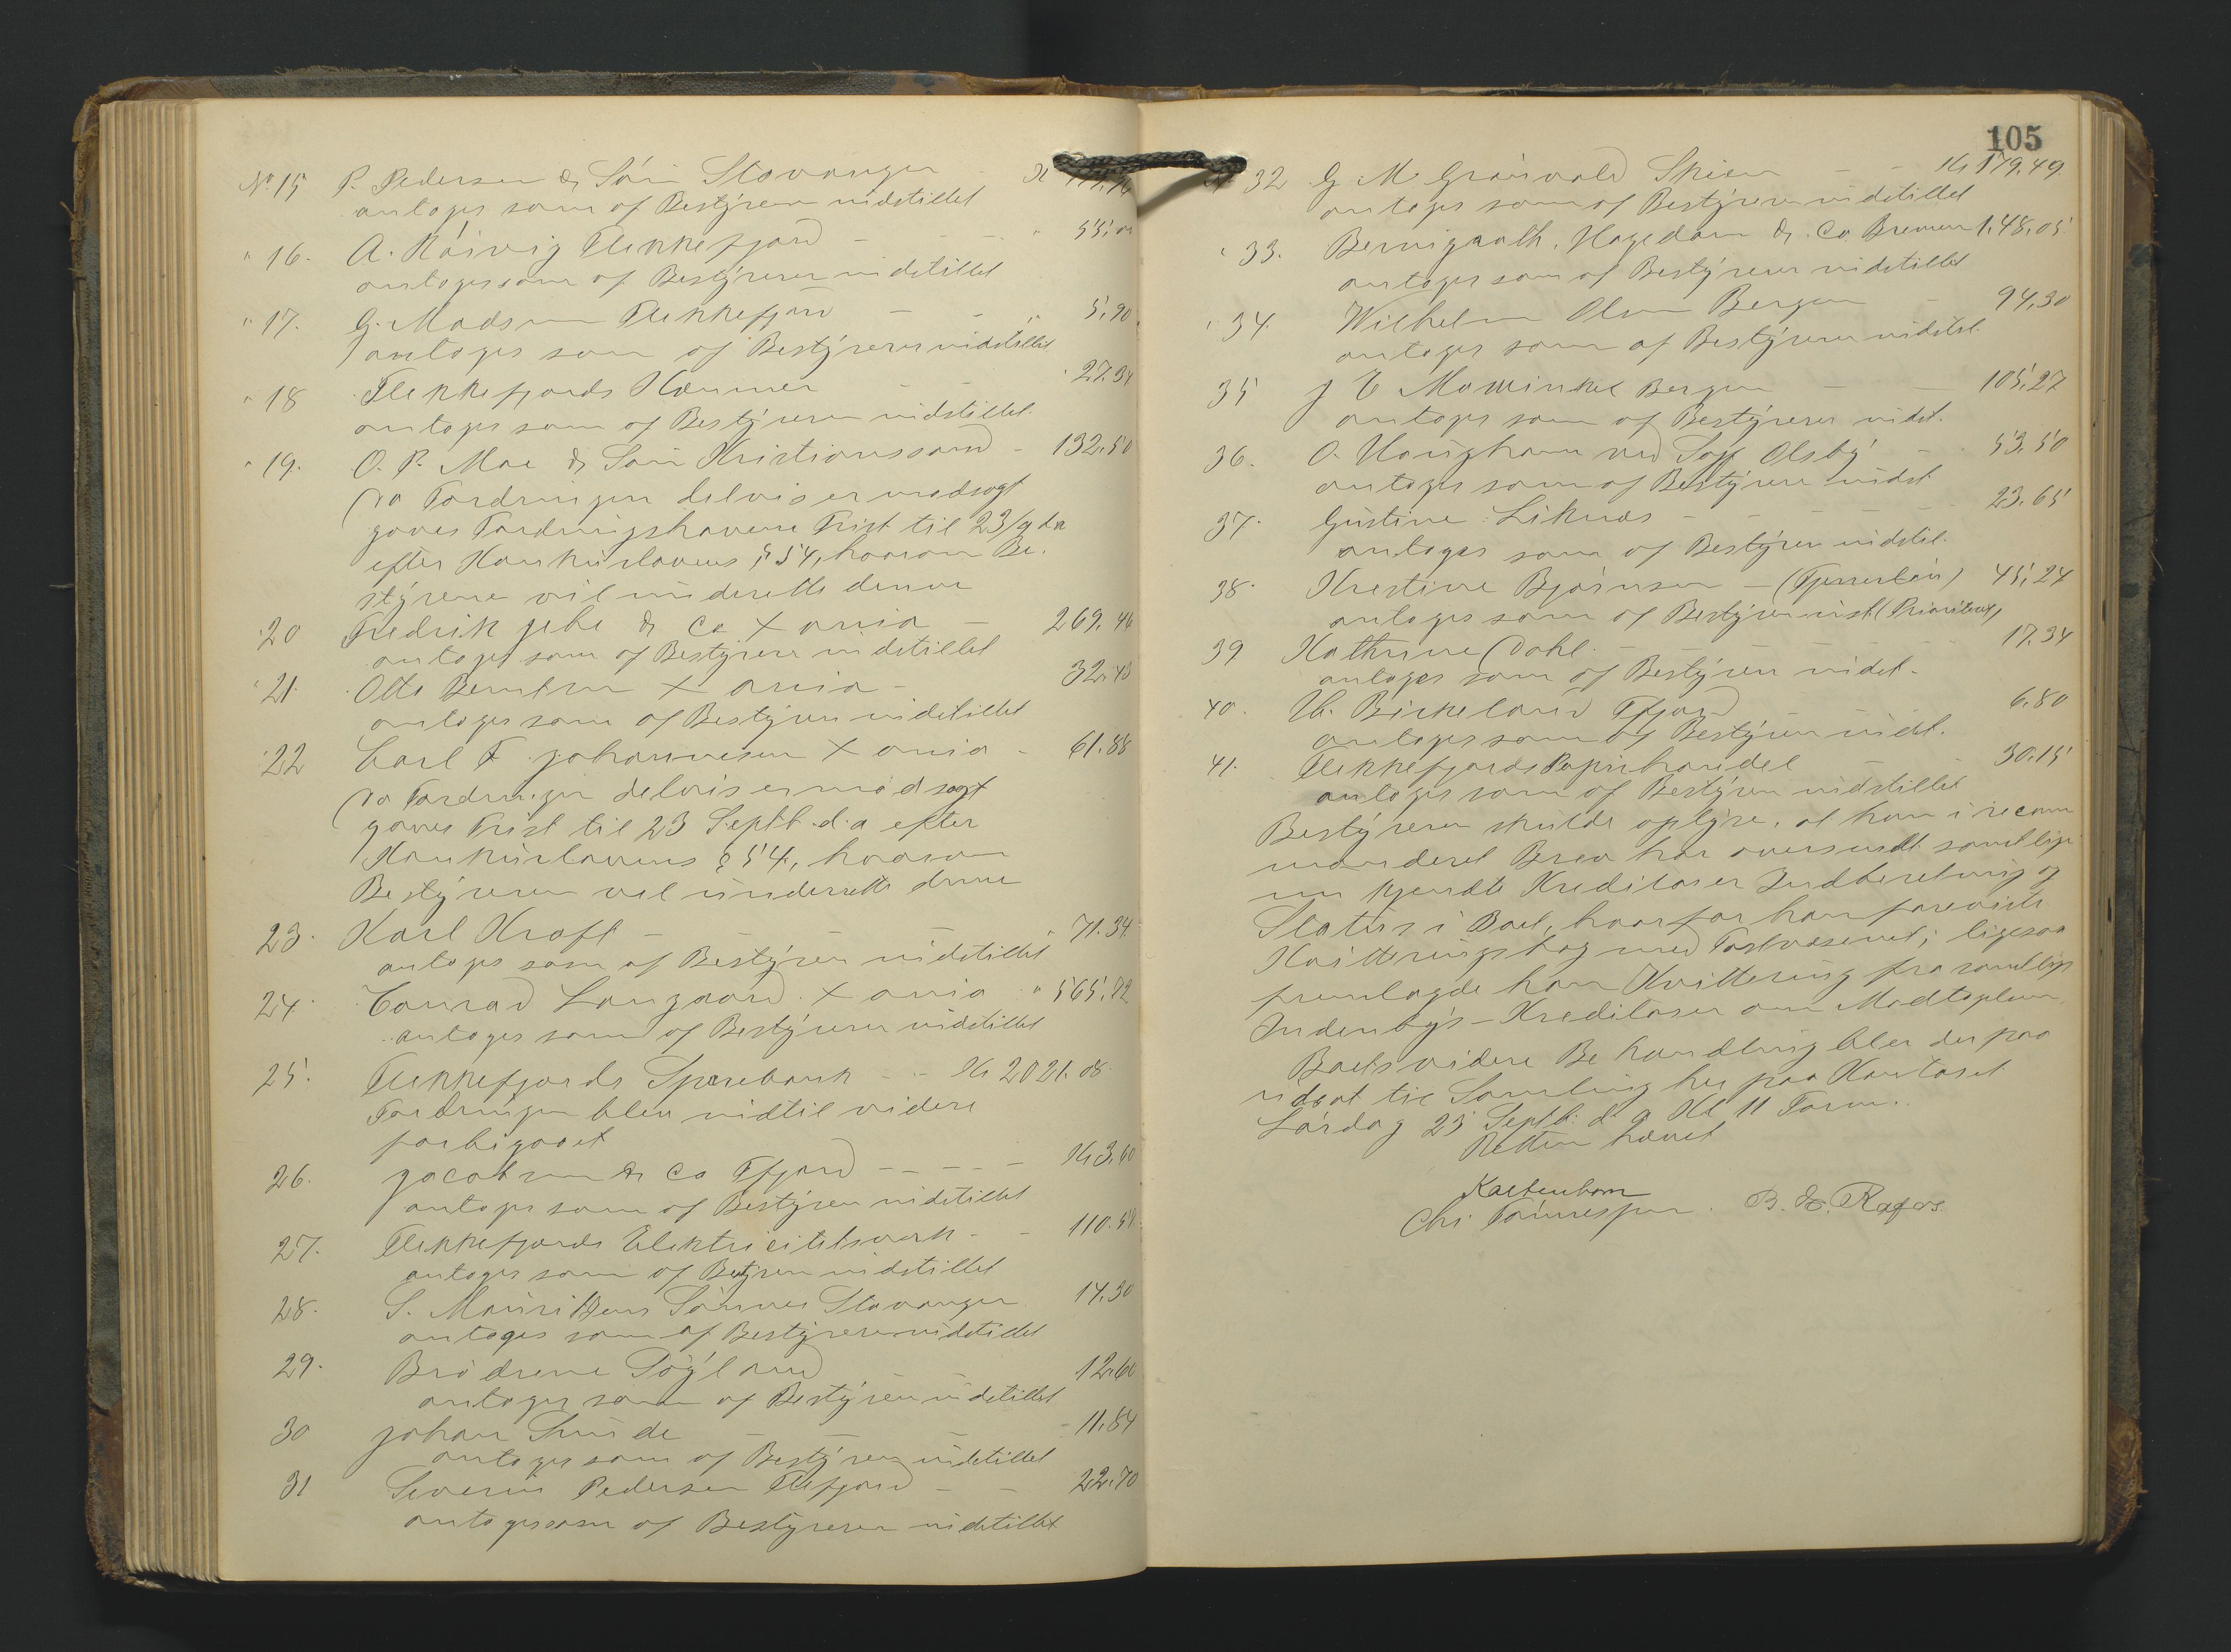 No 15 P. Pedersen & Søn Stavanger - Kr
antages som af Bestyreren indstillet
" 16. A. Röivig Flekkefjord - - - "
antages som af Bestyrerer indstillet
" 17. G. Madsen Flekkefjord - - " 5,90
antages som af Bestyrerer indstillet
" 18 Flekkefjords - - " 27.34
antages som af Bestyreren indstillet
" 19. O. P. Moe & Søn Kristianssand - 132.50
Da Fordringen delvis er modsagt
gaves Fordringshaverne Frist til 23/9 d.a
efter Konkurslovens § 54, hvorom Be-
styreren vil underette denne
" 20 Fredrik Jebe & Co Xania - 269.46
antages som af Bestyrere indstillet
" 21. Otto Berntsen Xania - 32.43
antages som af Bestyreren indstillet
" 22 Carl F. Johannesen Xania - 61.88
Da Fordringen delvis er modsagt
gaves Frist til 23 Septb. d.a efter
Konkurslovens § 54, hvorom
Bestyreren vil underrette denne
23. Karl Kroft - - - - " 71.34
antages som af Bestyreren indstillet
24. Conrad Langaard Xania " 565.82
antages som af Bestyrerer indstillet
25. Flekkefjords Sparebank - - Kr 2021.08
Fordringen blev indtil videre
forbigaaet
26. Jacobsen & Co Ffjord - - - - Kr 3.60
antages som af Bestyreren indstillet
27. Flekkefjords Elektricitetsverk - - 110.58
antages som af Bestyreren indstillet
28. S. Mauritzens Sønner Stavanger 14.30
antages som af Bestyreren indstillet
29. Brødrene 12.60
antages som af Bestyreren indstillet
30 Johan Sunde - - - 11.84
antages som af Bestyreren indstillet
31 Severin Pedersen Flefjord - - 22.70
antages som af Bestyreren indstillet
105
No 32 G. M. Grønvold Skien - - Kr 179.49
antages som af Bestyreren indstillet
" 33. Hagedorn & Co. Bremen 1,48.05
antages som af Bestyreren indstillet
" 34. Wilhelm Olsen Bergen - 94,30
antages som af Bestyreren indstil.
35 J E Mowinkel Bergen - - 105,27
antages som af Bestyrerer indst.
36. O. Haugham ved Sagf Olsby - 53,50
antages som af Bestyreren indst
37. Gustine Liknæs - - - - 23.65
antages som af Bestyreren indstil.
38. Kristine Bjørnsen - (Tjenerløn) 45,24
antages som af Bestyreren inst. (Prioritert)
39 Kathrine Dahl - - - 17.34
antages som af Bestyreren indst.
40. Birkeland Ffjord 6.80
antages som af Bestyreren indst.
41. Flekkefjords Papirhandel - - 30.15
antages som af Bestyreren indstillet
Bestyreren skulde oplyse, at han i recom
manderet Brev har oversendt samtlige
nu kjendte Kreditorer Indberetning og
Status i Boet, hvorfor han foreviste
Kvitteringsbog med Postvæsenet; ligesaa
fremlagde han Kvittering fra samtlige
Indenbys-Kreditorer om Modtagelsen.
Boets videre Behandling blev derpaa
udsat til Samling her paa Kontoret
Lørdag 23 Septb: d.a Kl 11 Form.
Retten hævet
Kaltenborn
Chr. Tønnessen. B. H. Rafos.